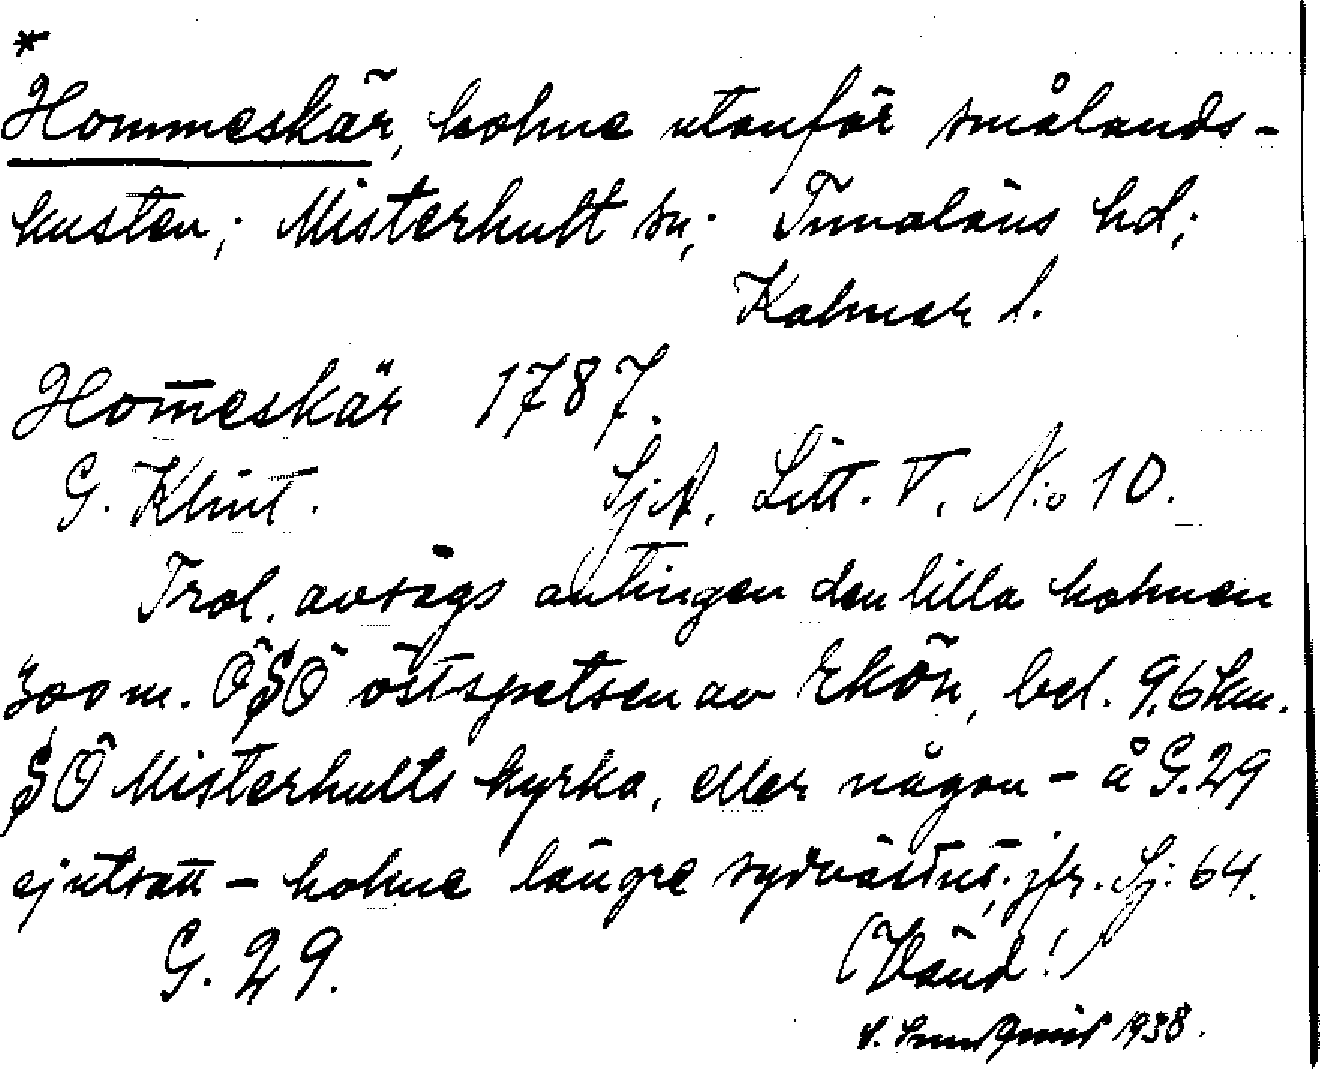 *
Hommeskär, holme utanför smålands-
kusten; Misterhult sn; Tunaläns hd;
Kalmar l.
Hom̅eskär 1787.
G. Klint. Sj.A. Litt. V. N:o 10.
Trol. avsågs antingen den lilla holmen
300 m. ÖSÖ östspetsen av Ekön, bel. 9,6 km.
SÖ Misterhults kyrka, eller någon - å G.29
ej utsatt - holme längre sydvästut; jfr. Sj: 64.
G. 29. (Vänd!)
V. Sundqvist 1938.